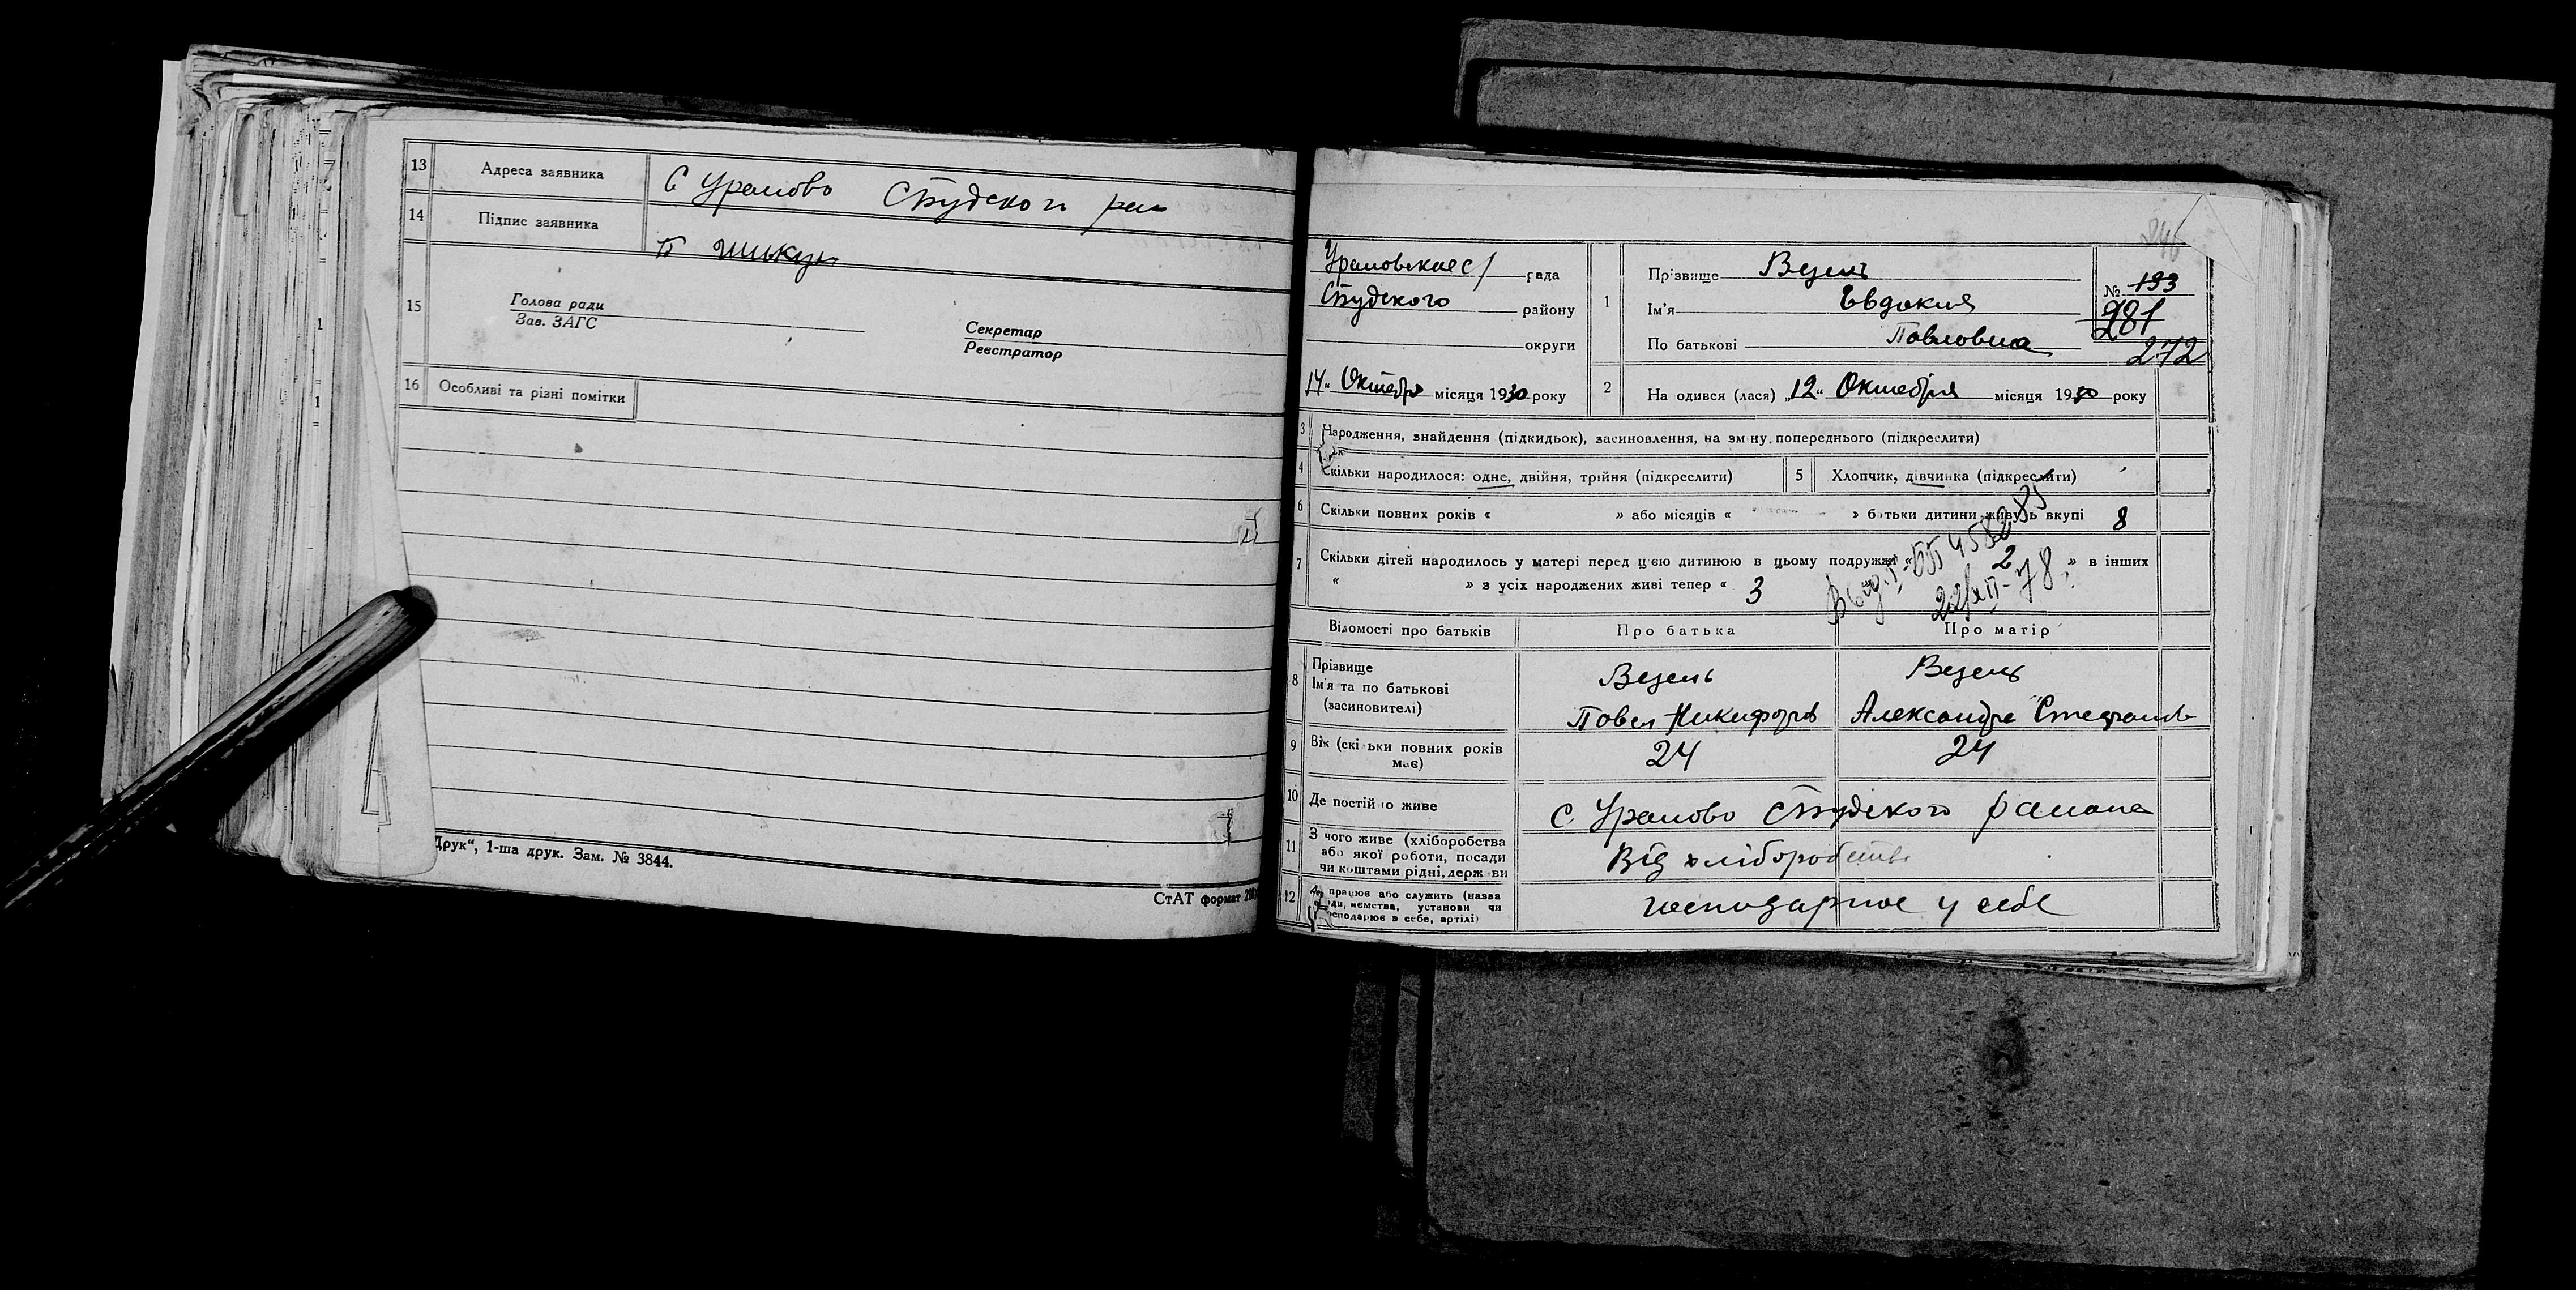 13 Адреса заявника С Ураново Студского рай
14 Підпис заявника
15 Голова ради
Зав. ЗАГС
Секретар
Реєстратор
16 Особливі та різні помітки
Друк“, 1-ша друк. Зам. № 3844.
СтАТ формат
246
рада
Студского району
округи
14 „ Октября місяця 1930 року
1 Прізвище Везель
Ім'я Евдокия
По батькові Павловна
№ 193
281
272
2 На одився (лася) „12“ Октября місяця 1930 року
3 Народження, знайдення (підкидьок), засиновлення, на зміну попереднього (підкреслити)
4 Скільки народилося: одне, двійня, трійня (підкреслити) 5 Хлопчик, дівчинка (підкреслити)
6 Скільки повних років « » або місяців « » батьки дитини живуть вкупі 8
7 Скільки дітей народилось у матері перед цією дитиною в цьому подружжі « 2 » в інших
« » з усіх народжених живі тепер « 3 »
22/XII-78
Відомості про батьків Про батька Про матір
8 Прізвище Везель Везель
Ім'я та по батькові
(засиновителі) Павел Никифоров Александра Степанов
9 Вік (скільки повних років має) 24 24
10 Де постійно живе С Ураново Студского района
11 З чого живе (хліборобства або якої роботи, посади чи коштами рідні, держави Від хліборобства
12 Де працює або служить (назва установи чи господарює в себе, артілі) господарює у себе